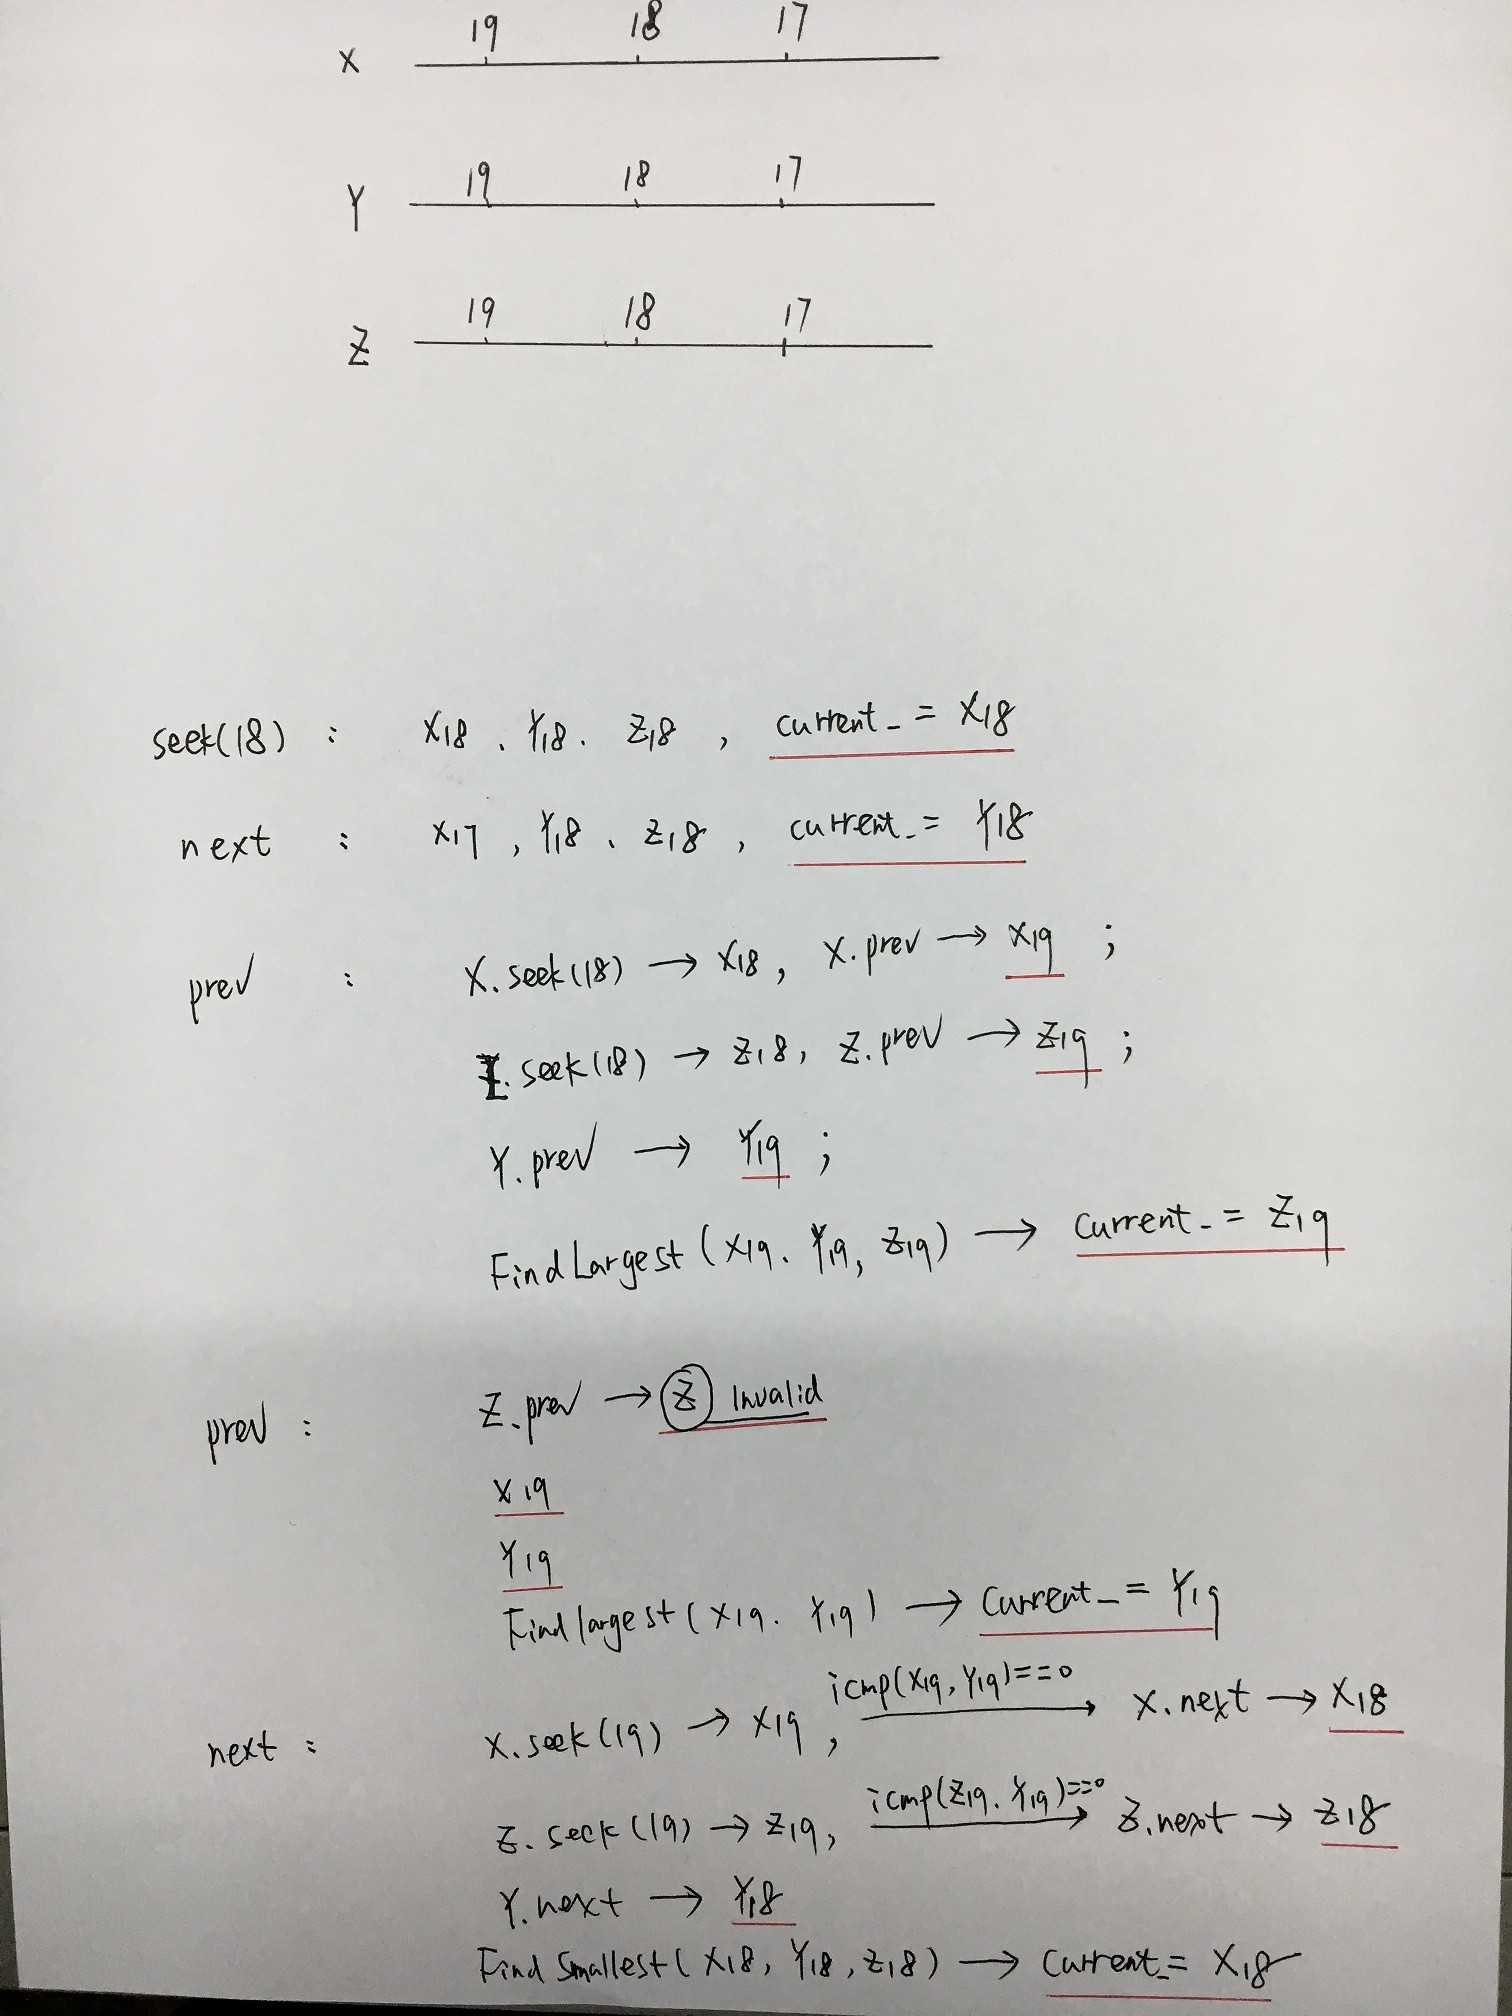 19 18 17
X
19 18 17
Y
19 18 17
Z
seek(18) : X18 、Y18、Z18 , current_ = X18
next : X17 , Y18 、Z18 , current_ = Y18
prev : X.seek(18) → X18 , X.prev → X19 ;
Z.seek(18) → Z18, Z.prev → Z19 ;
Y.prev → Y19 ;
FindLargest (X19、Y19, Z19) → current_ = Z19
prev : Z.prev → Z Invalid
X19
Y19
Findlargest(X19、Y19) → current_ = Y19
icmp(X19, Y19)==0
next : X.seek(19) → X19 , X.next → X18
icmp(Z19、Y19)==0
Z.seek(19) → Z19, Z.next → Z18
Y.next → Y18
FindSmallest(X18, Y18, Z18) → current_= X18